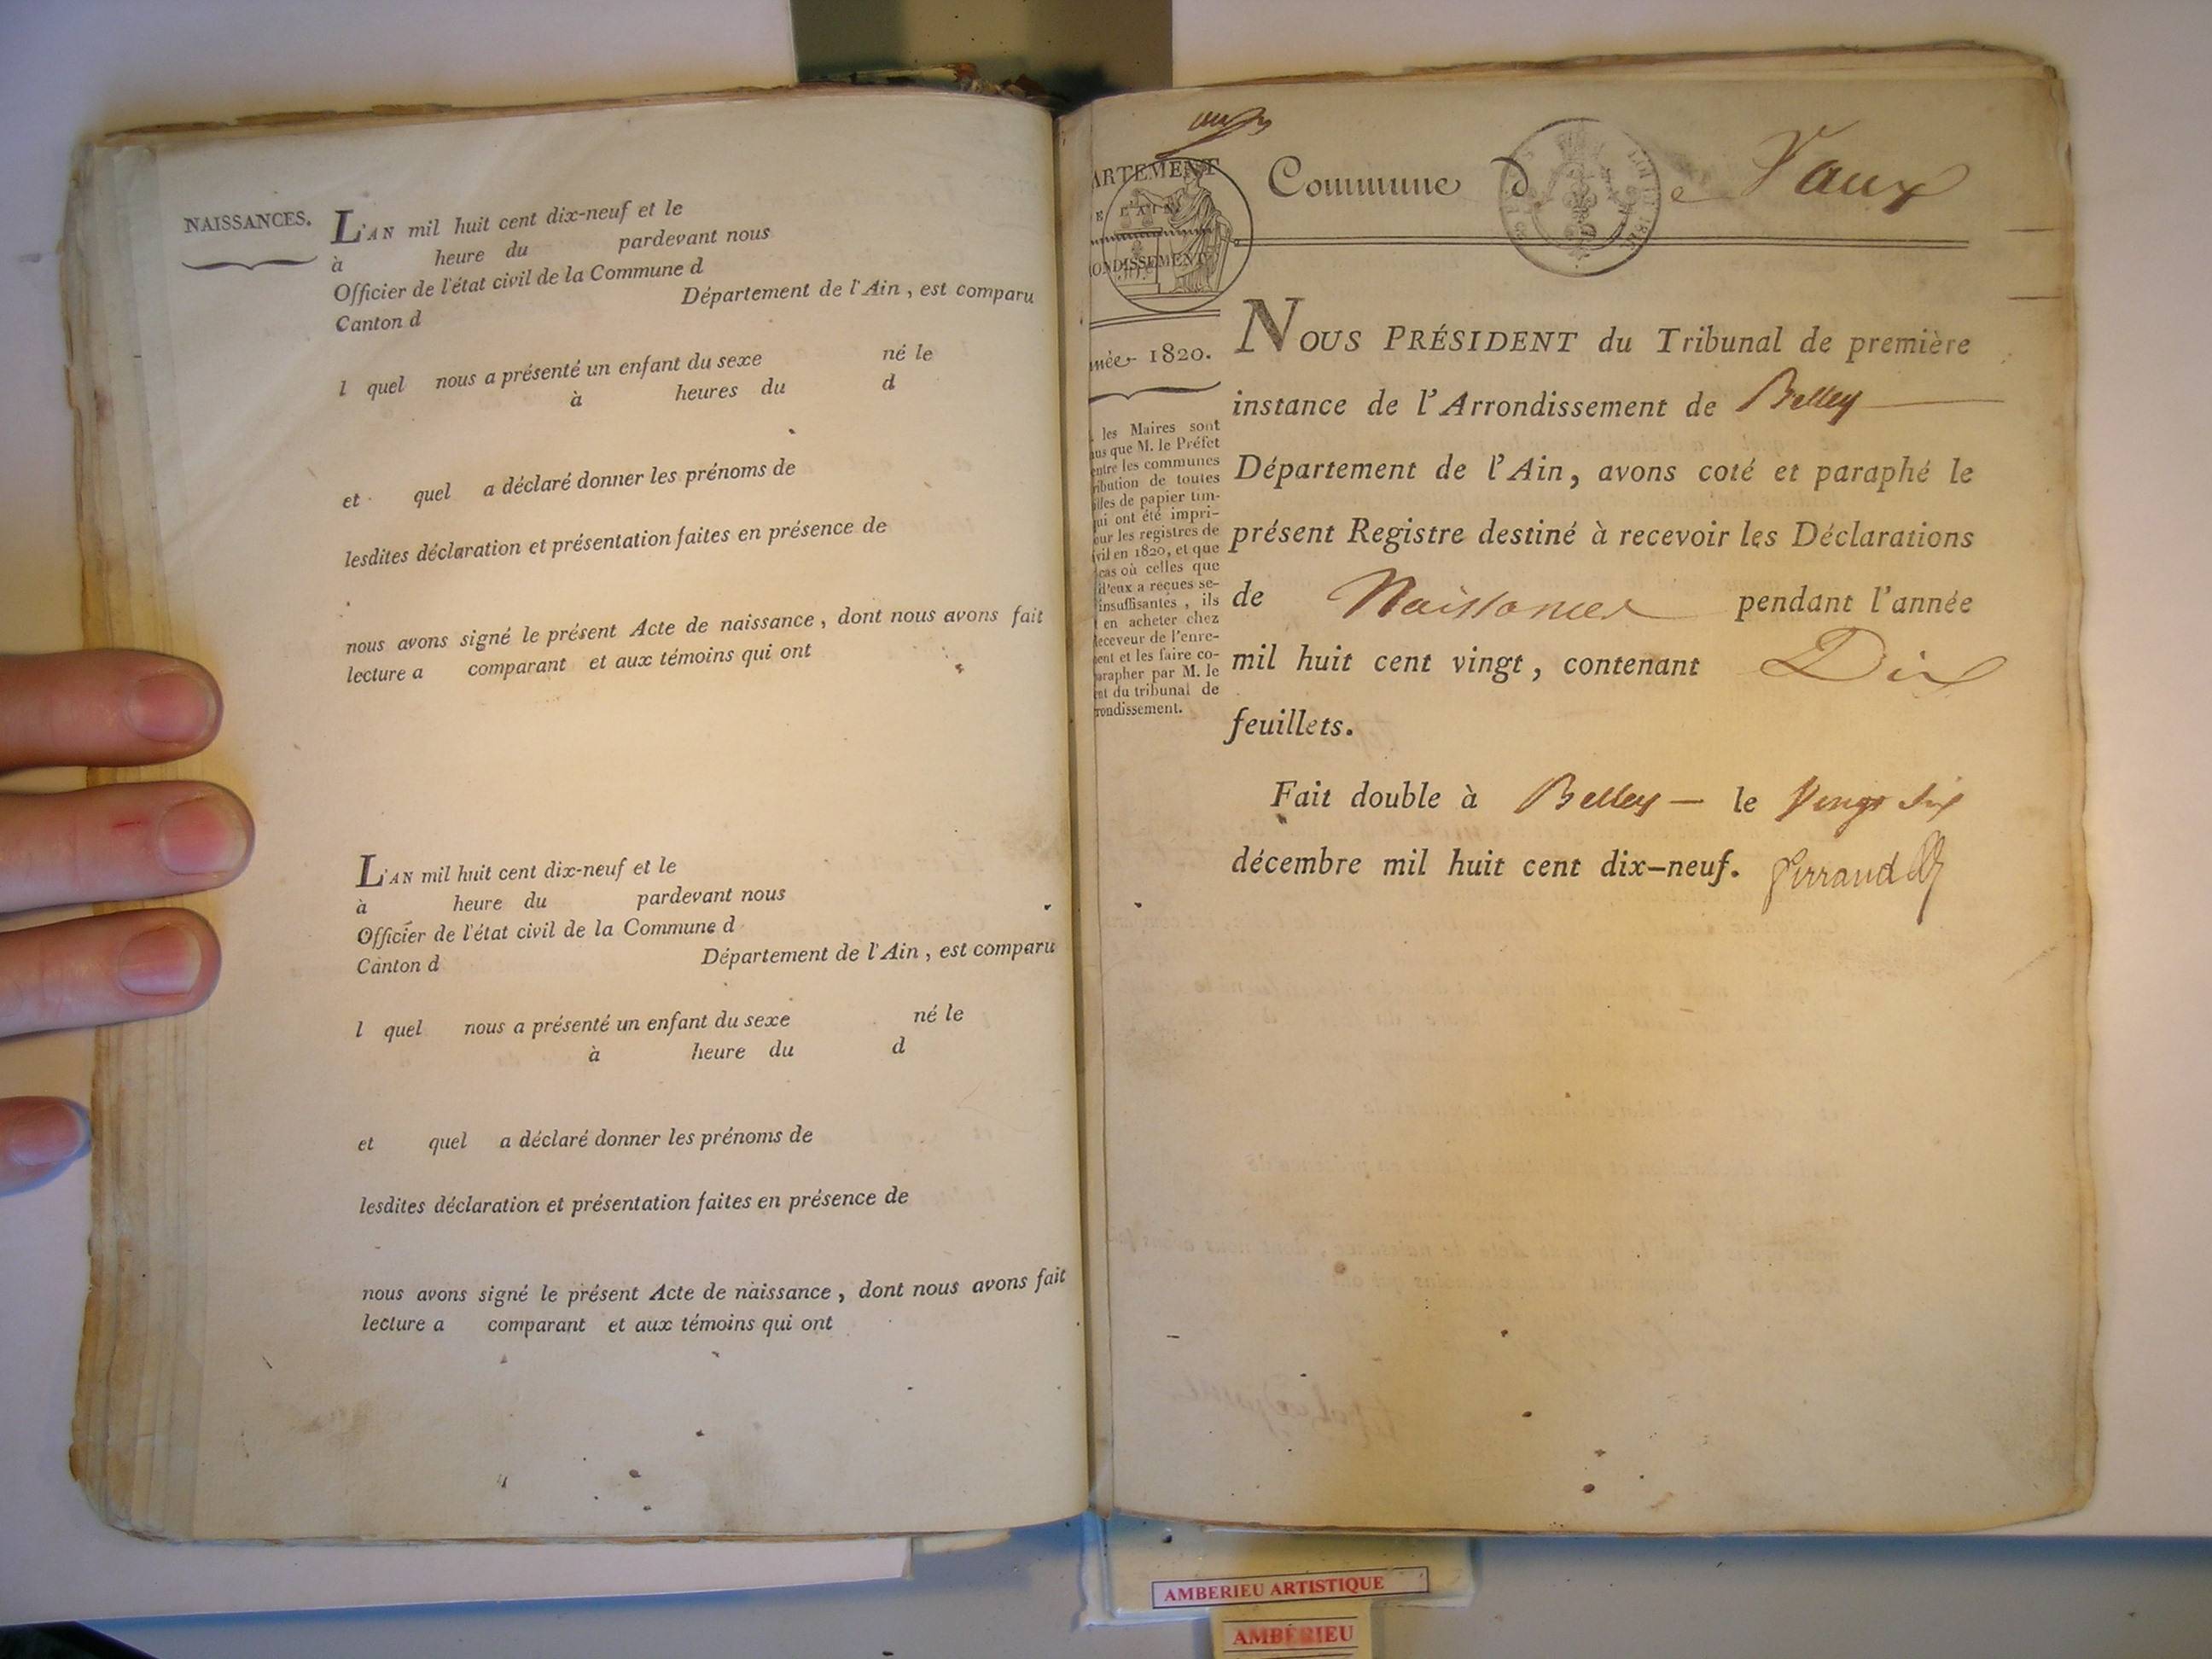 NAISSANCES.
L'AN mil huit cent dix-neuf et le
à heure du pardevant nous
Officier de l'état civil de la Commune d
Canton d Département de l'Ain, est comparu
l quel nous a présenté un enfant du sexe né le
à heures du d
et quel a déclaré donner les prénoms de
lesdites déclaration et présentation faites en présence de
nous avons signé le présent Acte de naissance, dont nous avons fait
lecture a comparant et aux témoins qui ont
L'AN mil huit cent dix-neuf et le
à heure du pardevant nous
Officier de l'état civil de la Commune d
Canton d Département de l'Ain, est comparu
l quel nous a présenté un enfant du sexe né le
à heure du d
et quel a déclaré donner les prénoms de
lesdites déclaration et présentation faites en présence de
nous avons signé le présent Acte de naissance, dont nous avons fait
lecture a comparant et aux témoins qui ont
ARTEMENT
E L'AIN
ONDISSEMENT
née 1820.
les Maires sont
us que M. le Préfet
entre les communes
ribution de toutes
illes de papier tim-
qui ont été impri-
our les registres de
ivil en 1820, et que
cas où celles que
d'eux a reçues se-
insuffisantes, ils
en acheter chez
eceveur de l'enre-
ent et les faire co-
arapher par M. le
nt du tribunal de
rondissement.
Commune de Vaux
NOUS PRÉSIDENT du Tribunal de première
instance de l'Arrondissement de Belley
Département de l'Ain, avons coté et paraphé le
présent Registre destiné à recevoir les Déclarations
de Naissances pendant l'année
mil huit cent vingt, contenant Dix
feuillets.
Fait double à Belley — le Vingt six
décembre mil huit cent dix-neuf.
AMBERIEU ARTISTIQUE
AMBÉRIEU